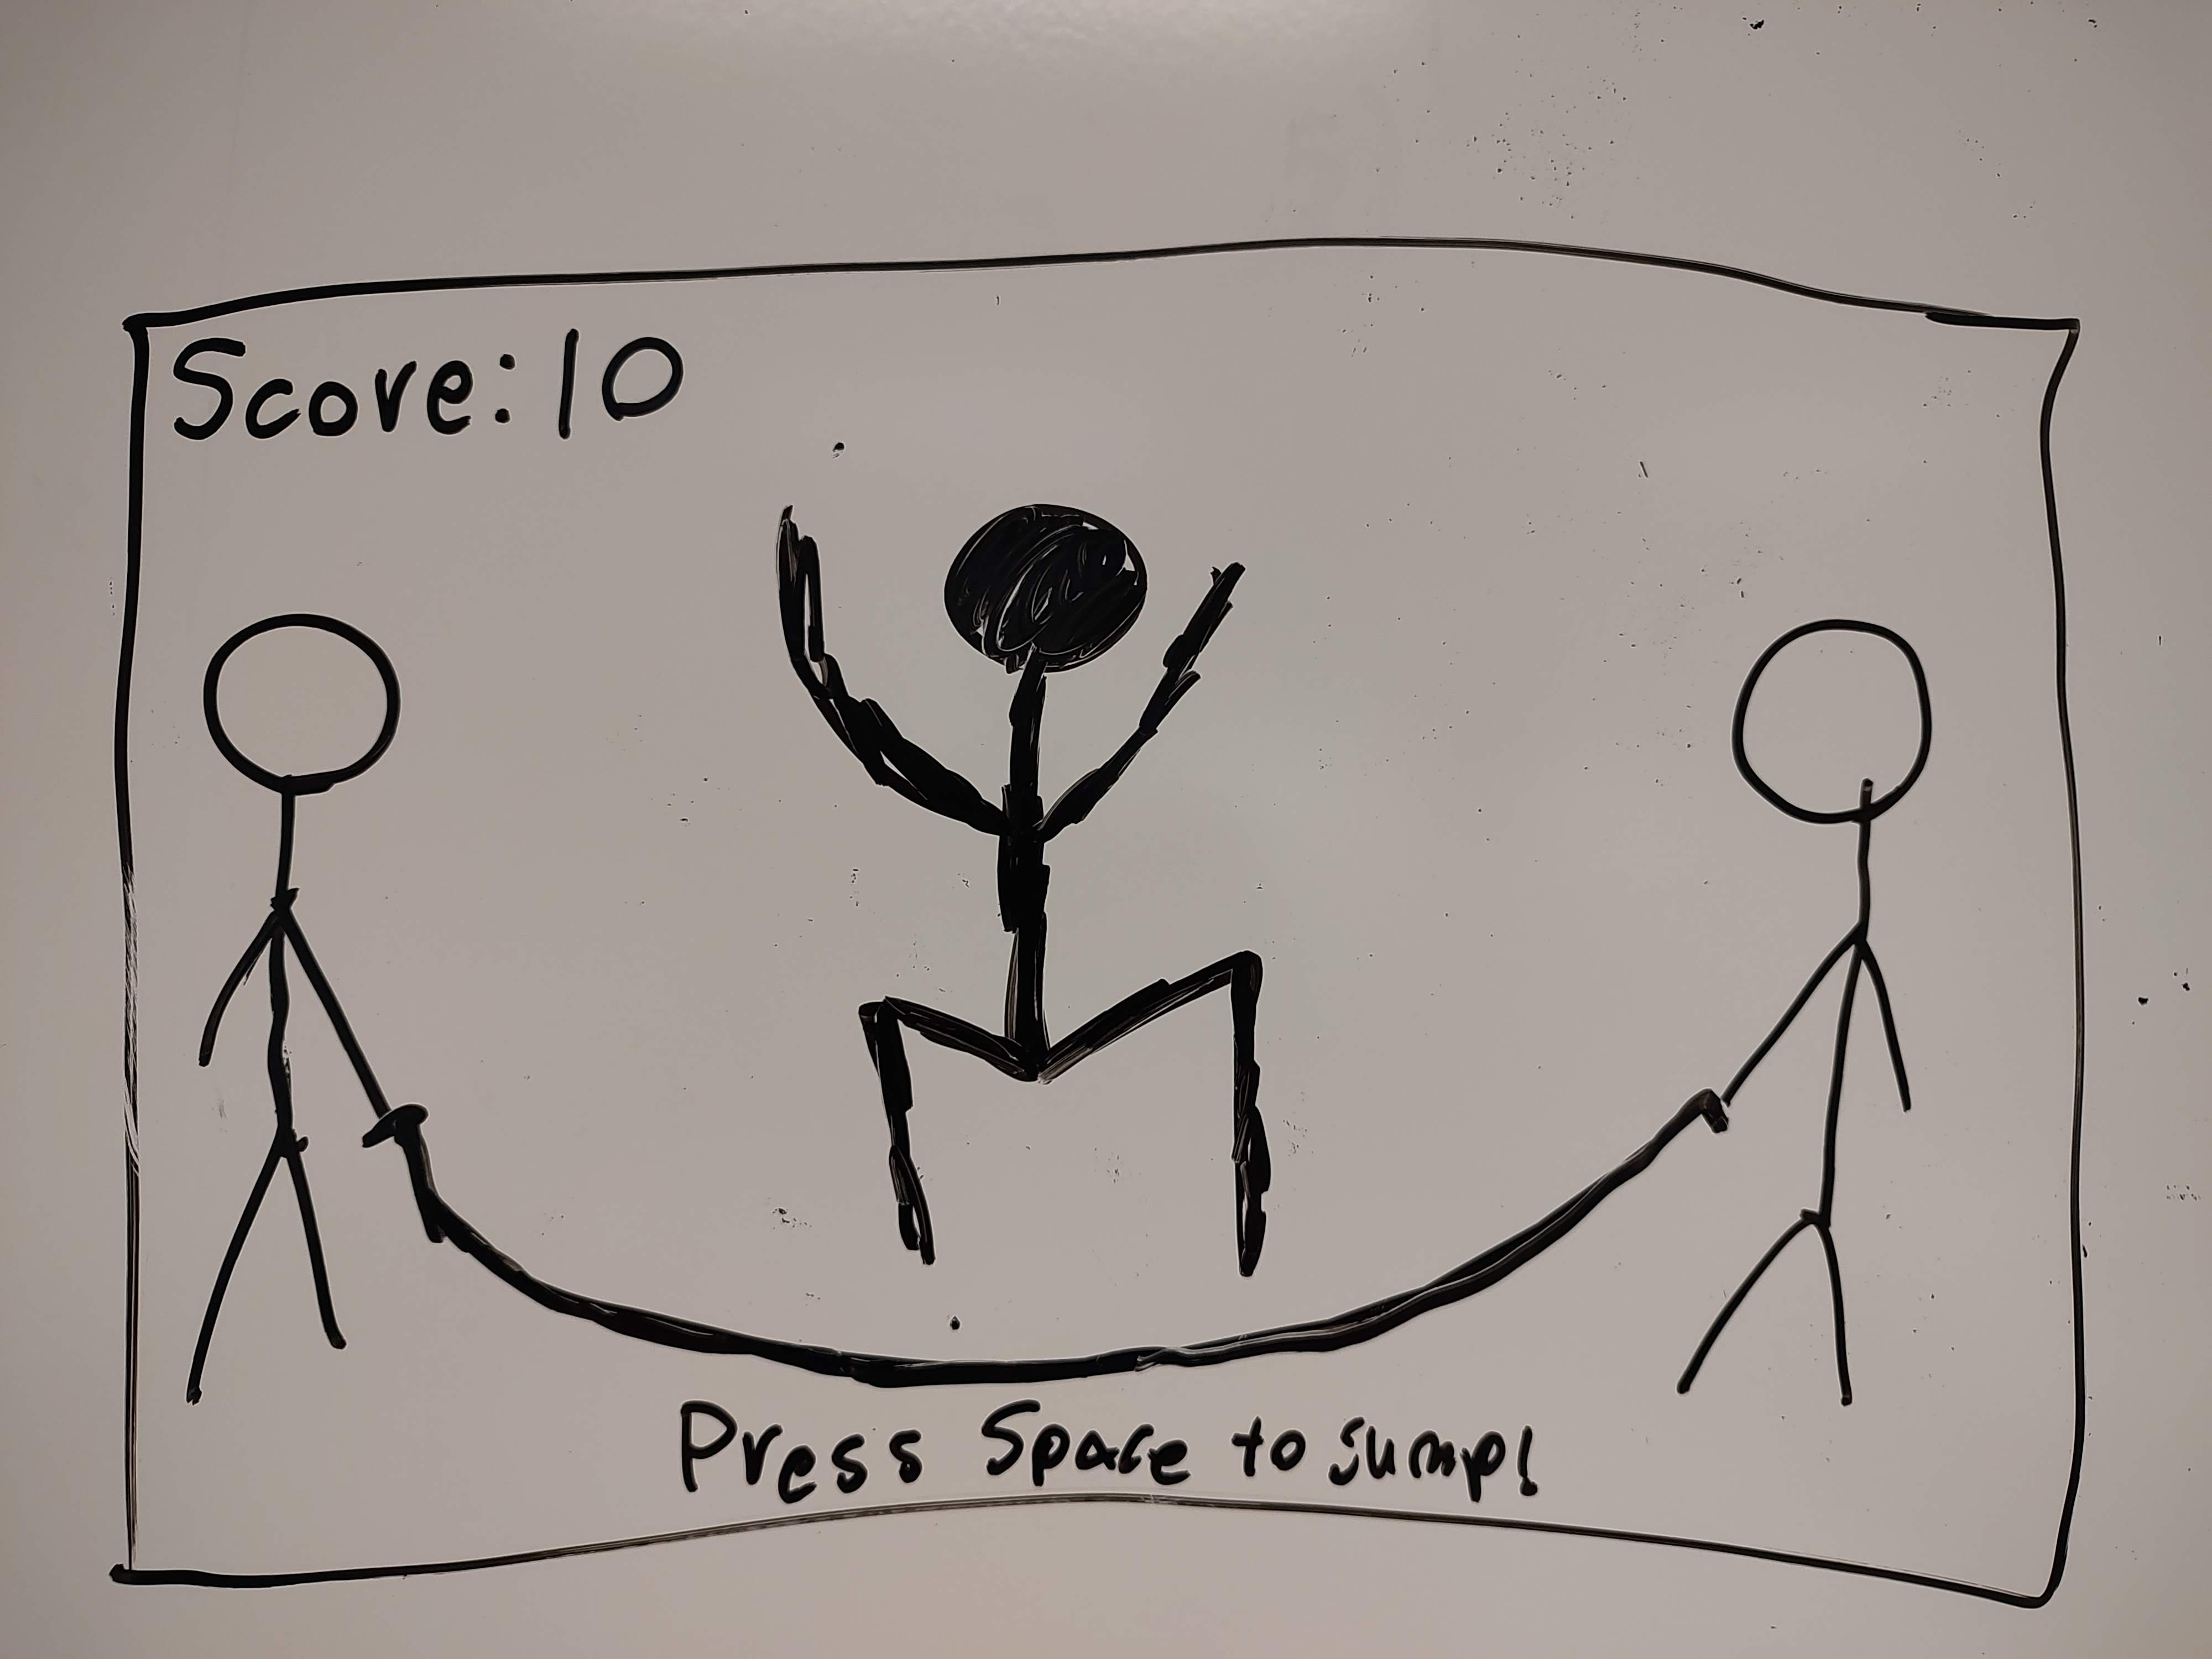 Score: 10
Press Space to jump!